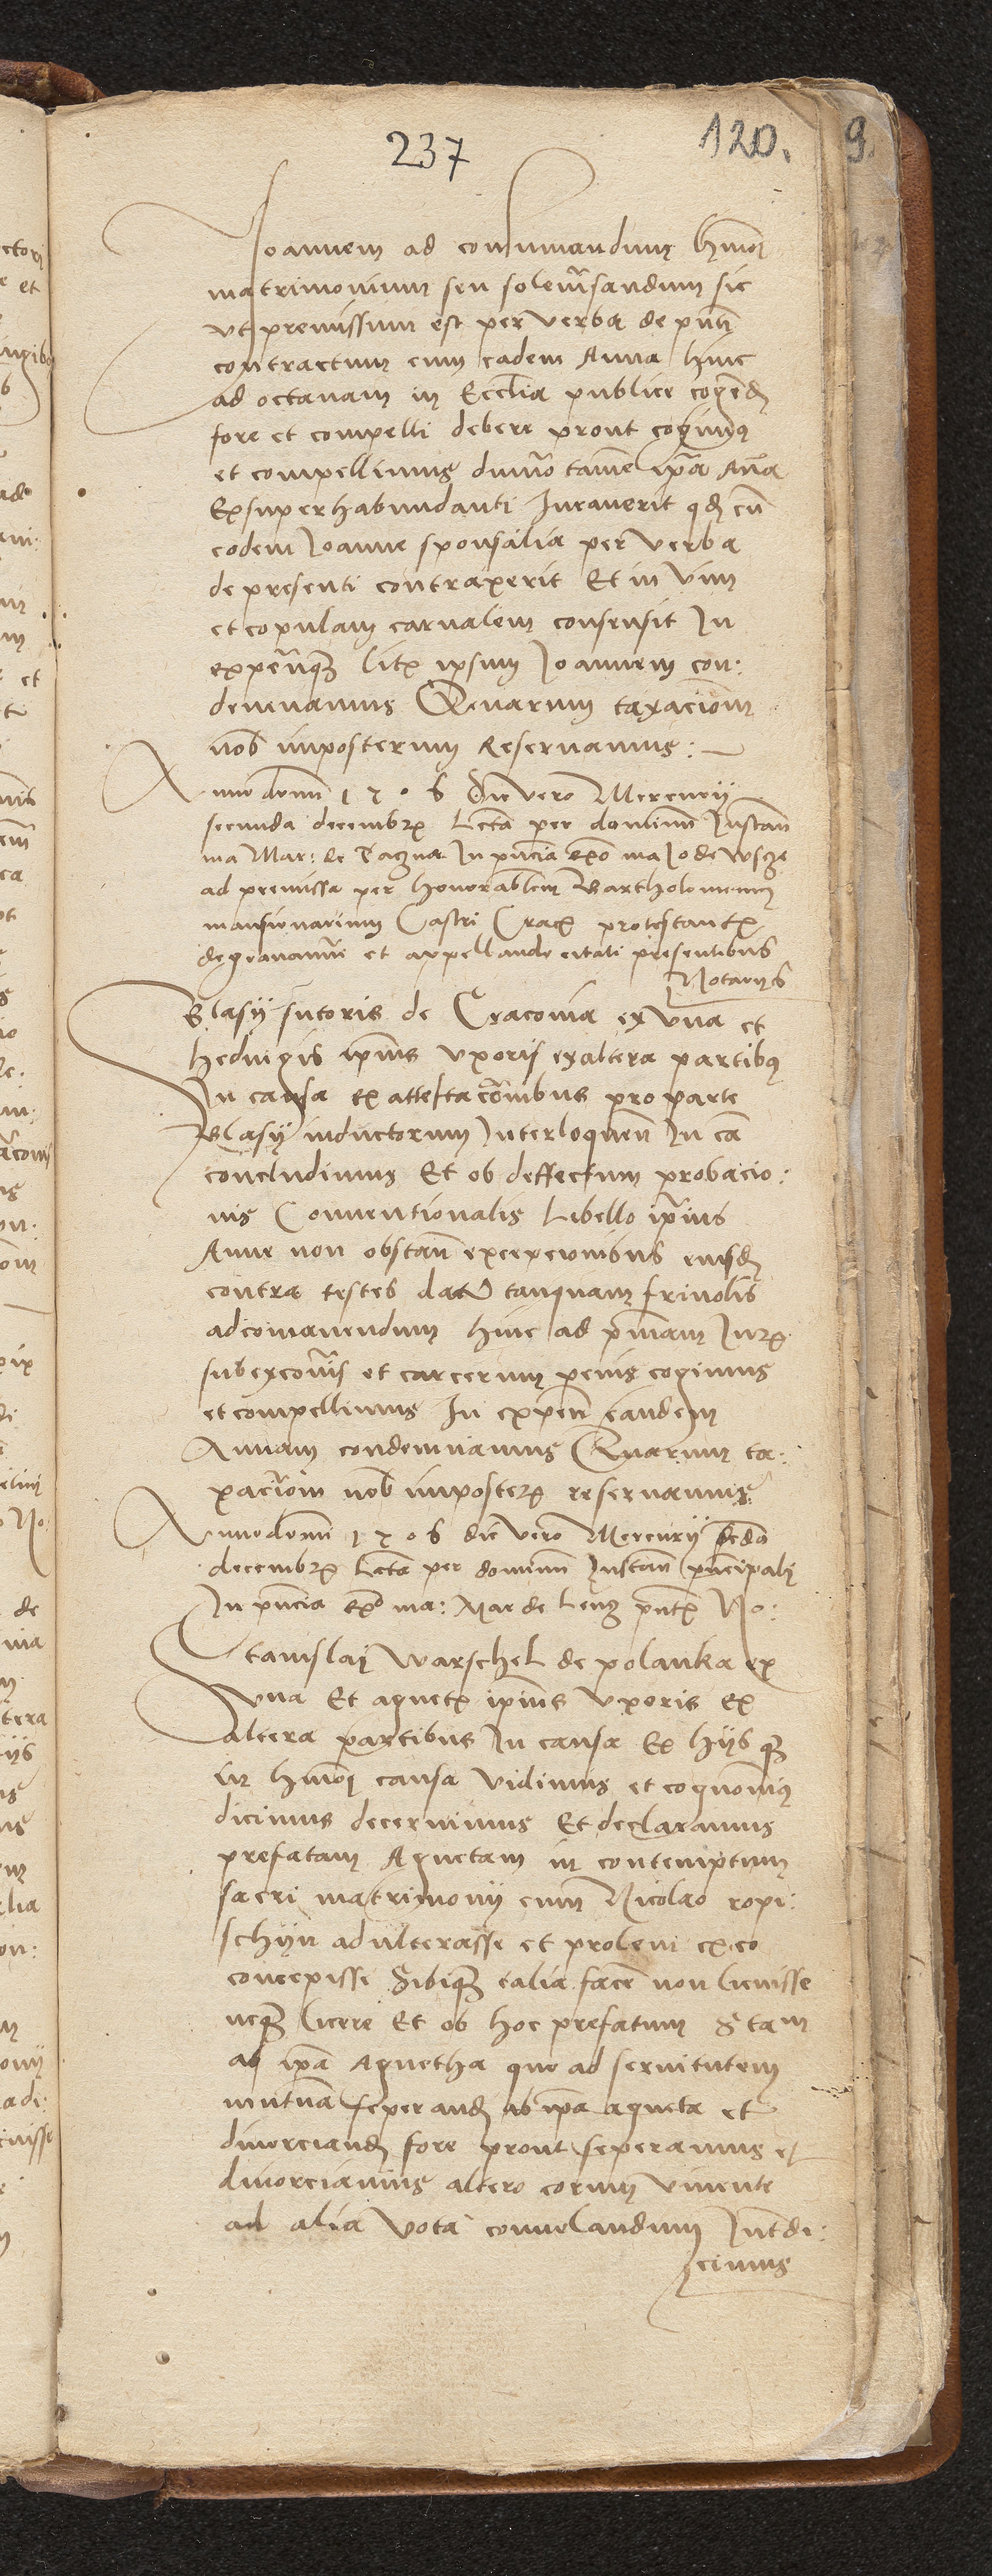 237
120.
9.
Ioannem ad consumandum hmoi
matrimonium seu solemsandum sic
vt premissum est per verba de pnti
contractum cum eadem Anna hinc
ad octauam in Ecclia publice cogend
fore et compelli debere prout cogimus
et compellimus dumo tamen ipa Ana
Ex superhabundanti Iurauerit qd cu
eodem Ioanne sponsalia per verba
de presenti contraxerit Et in vim
et copulam carnalem consensit In
expensisque litis ipsum Ioannem con:
demnamus Quarum taxaciom
nob imposterum Reseruamus:
Anno domi 1506 Die vero Mercurij
secunda decembris Lcta per dominu Instan
ma Mar: de In pncia exo ma Io de
ad premissa per honorablem Bartholomeum
mansionarium Castri Crac protestante
de grauamine et appellando citati presentibus
Notarijs
Blasij sutoris de Cracouia ex Vna et
heduigis ipius vxoris ex altera partibus
In causa ex attestacionibus pro parte
Blasij inductorum Interloquen In ca
concludimus Et ob deffectum probacio:
nis Conuentionalis Libello ipius
Anne non obstan excepcionibus eiusd
contra testes dat tanquam friuolis
ad comanendum hinc ad pmam Iur
sub excois et carcerum penis cogimus
et compellimus In expen eandem
Annam condemnamus Quarum ta:
xaciom nob imposter reseruamus
Anno domi 1506 die vero Mercurij scda
decembris Lcta per dominu Instan principali
In pncia exo ma: Mar de pntib No:
Stanislai Warschel de polanka ex
vna Et agnetis ipius vxoris ex
altera partibus In causa Ex hijs que
in hmoi causa vidimus et cognouimus
dicimus decernimus Et declaramus
prefatam Agnetam in contemptum
sacri matrimonij cum Nicolao ropi:
schijn adulterasse et prolem ex eo
concepisse Sibique talia face non licuisse
neque licere Et ob hoc prefatum Stan
ab ipa Agnetha quo ad seruitutem
mutua seperand ab ipa agneta et
diuorciand fore prout seperamus et
diuorciamus altero eorum viuente
ad alia vota conuolandum Intdi:
cimus